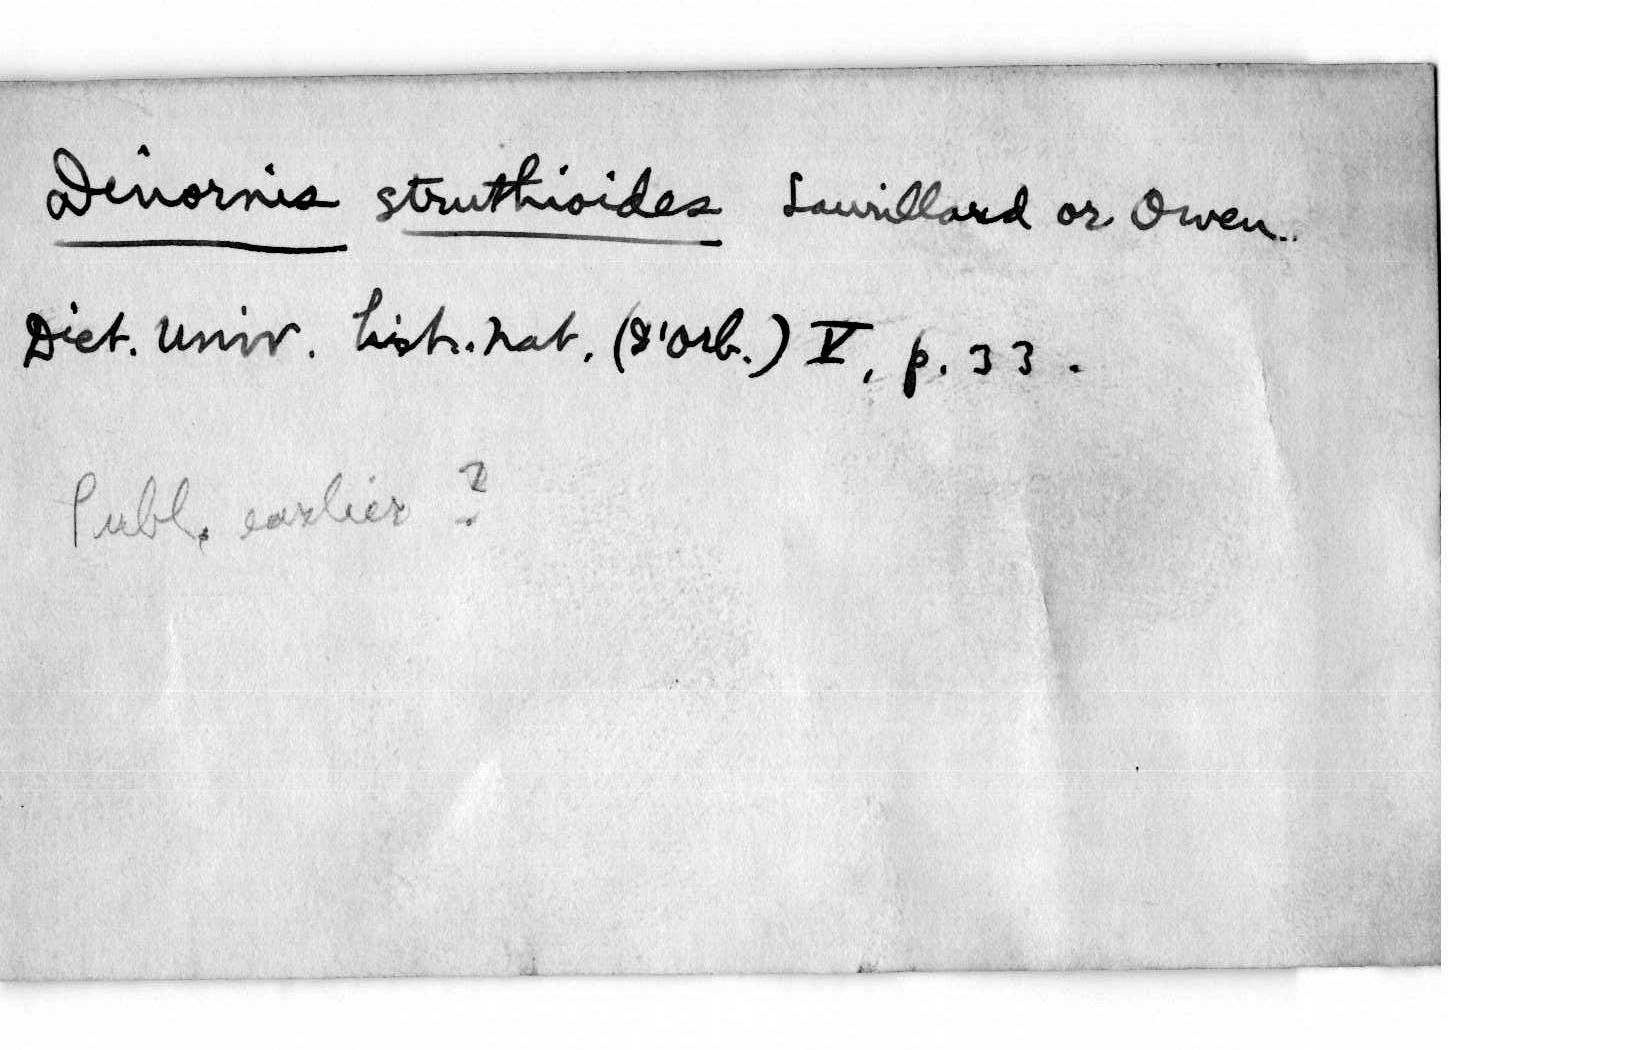 Dinornis struthioides Laurillard or Owen.
Dict. Univ. hist. nat. (d'Orb.) V, p. 33.
Publ. earlier?